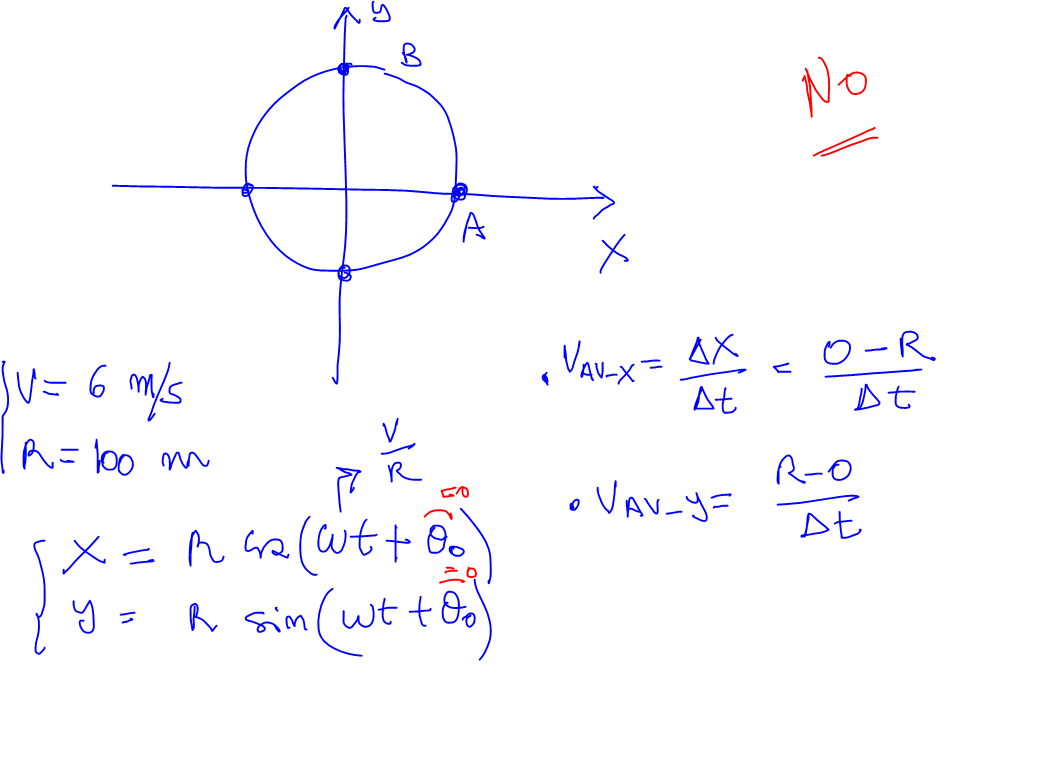 y
B
No
A
X
V = 6 m/s
R = 100 m
V/R
=0
X = R cos(ωt + θ₀)
=0
y = R sin(ωt + θ₀)
. V_AV-X = ΔX/Δt = 0-R/Δt
• V_AV-y = R-0/Δt